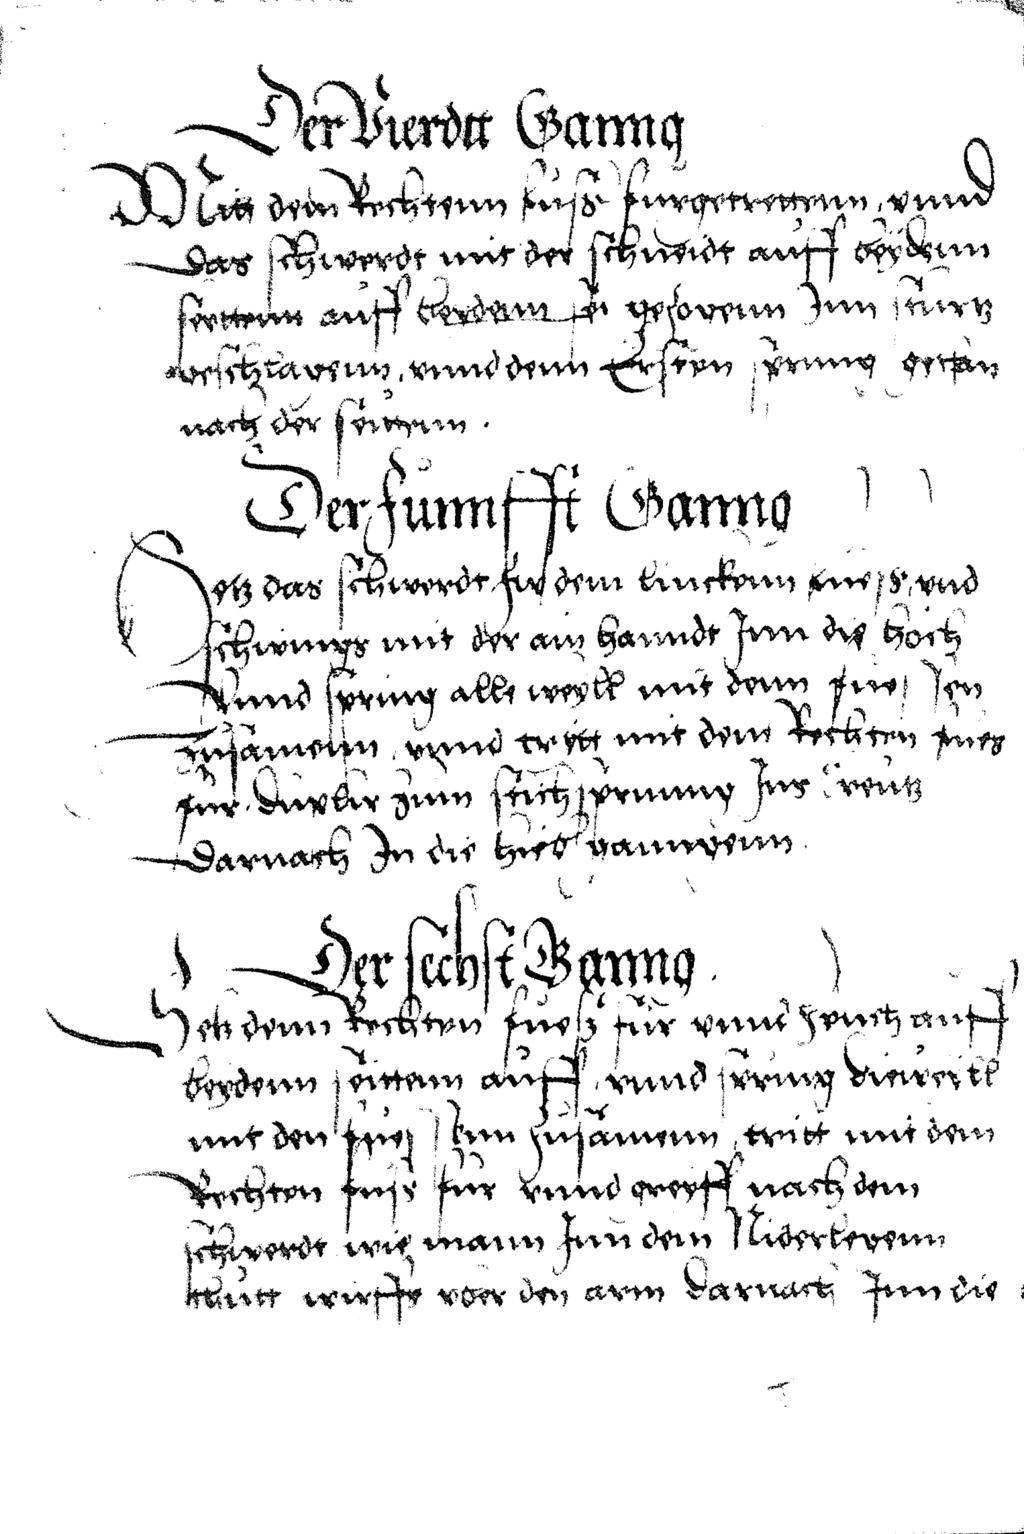 Der Vierdtt Ganng
Mitt dem Rechtenn fuß furgetrettenn, vnnd
das schwerdt mit der schneidt auff beydenn
seettenn auff gehobenn Jnn sturtz
geschlagenn, vnnd denn Ersten sprung gethan
nach der seittenn.
Der funnfft Ganng
Setz das schwerdt fur dem linckenn fuess, vnd
schwings mit der ain hanndt Jnn die hoch
Vnnd spring alle weyll mit denn fuessen
zusamenn, vnnd tritt mit dem Rechten fues
fur. zum stichsprunng Jns kreutz
darnach Jn die hieb ganngenn.
Der sechst Ganng.
Setz denn Rechten fuesz für vnnd zeuch auff
beydenn seittenn auff, vnnd spring dieweyll
mit den fuessenn zusamenn, tritt mit dem
Rechten fuss für vnnd greyff nach dem
schwerdt wie mann Jnn dem Niderlegenn
thutt wirffs vber den arm darnach Jnn die